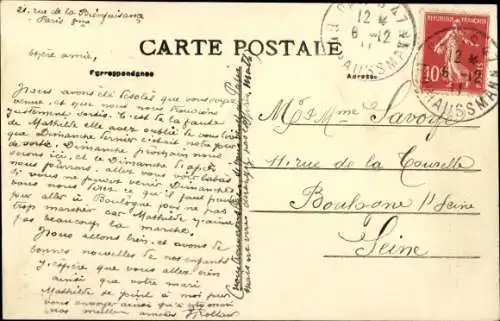 21, rue de la Bienfaisance
Paris 8me
CARTE POSTALE
Correspondance
Adresse
RÉPUBLIQUE FRANÇAISE
10
POSTES
12
6 - 12
11
Chère amie,
Nous avons été désolés que vous soyez
venue, et que nous nous trouvions
justement sortis. C'est de la faute
de Mathilde elle avait oublié de vous dire
que Dimanche dernier c'était notre jour
de sortie. Dimanche prochain nous
serons ici et le Dimanche d'après
nous pourrons allez vous voir
si vous ne pouvez venir Dimanche
vous nous direz ce qu'il faut prendre
pour aller à Boulogne pour ne pas
trop marcher car Mathilde n'aime
pas beaucoup la marche.
Nous allons bien, et avons de
bonnes nouvelles de nos enfants
J'espère que vous allez bien
ainsi que votre mari
Mathilde se joint à moi pour
vous envoyer ainsi qu'à votre mari
nos meilleures amitiés
M. & Mme Savoye
11 rue de la
Boulogne s/ Seine
Seine